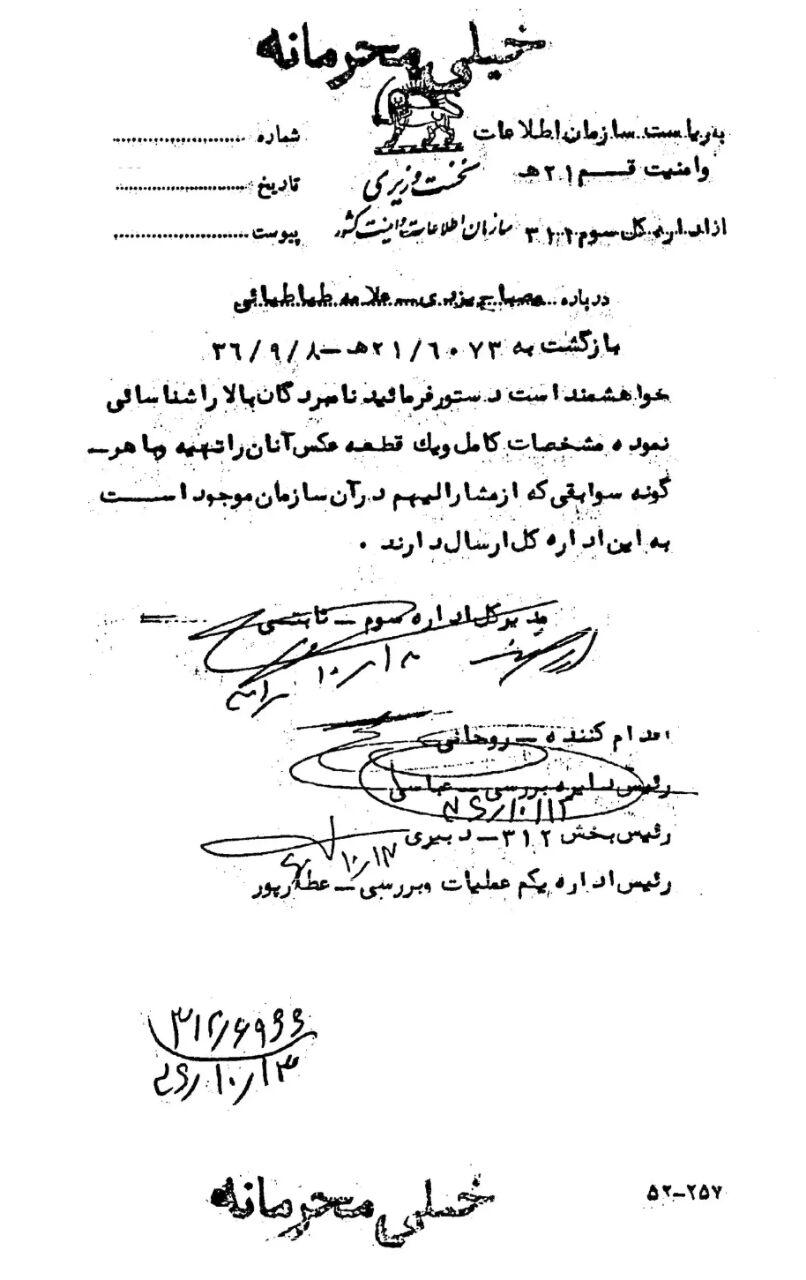 خیلی محرمانه
به ریاست سازمان اطلاعات
و امنیت قسم ۲۱ هـ
از اداره کل سوم ۳۱۲
نخست وزیری
سازمان اطلاعات و امنیت کشور
شماره
تاریخ
پیوست
درباره مصباح یزدی – علامه طباطبائی
بازگشت به ۲۱/۶۰۷۳هـ – ۳۶/۹/۸
خواهشمند است دستور فرمائید نامبردگان بالا را شناسائی
نموده مشخصات کامل ویك قطعه عکس آنان را تهیه وبا هر –
گونه سوابقی که از مشارالیهم در آن سازمان موجود است
به این اداره کل ارسال دارند .
مدیر کل اداره سوم – ثابتی
۱۰/۱۸
اقدام کننده – روحانی
رئیس دایره بررسی – عباسی
۱۰/۱۲
رئیس بخش ۳۱۲ – دبیری
۱۰/۱۲
رئیس اداره یکم عملیات وبررسی – عطارپور
۳۱۲/۶۹۳۳
۱۰/۱۳
خیلی محرمانه
۵۲–۲۵۷